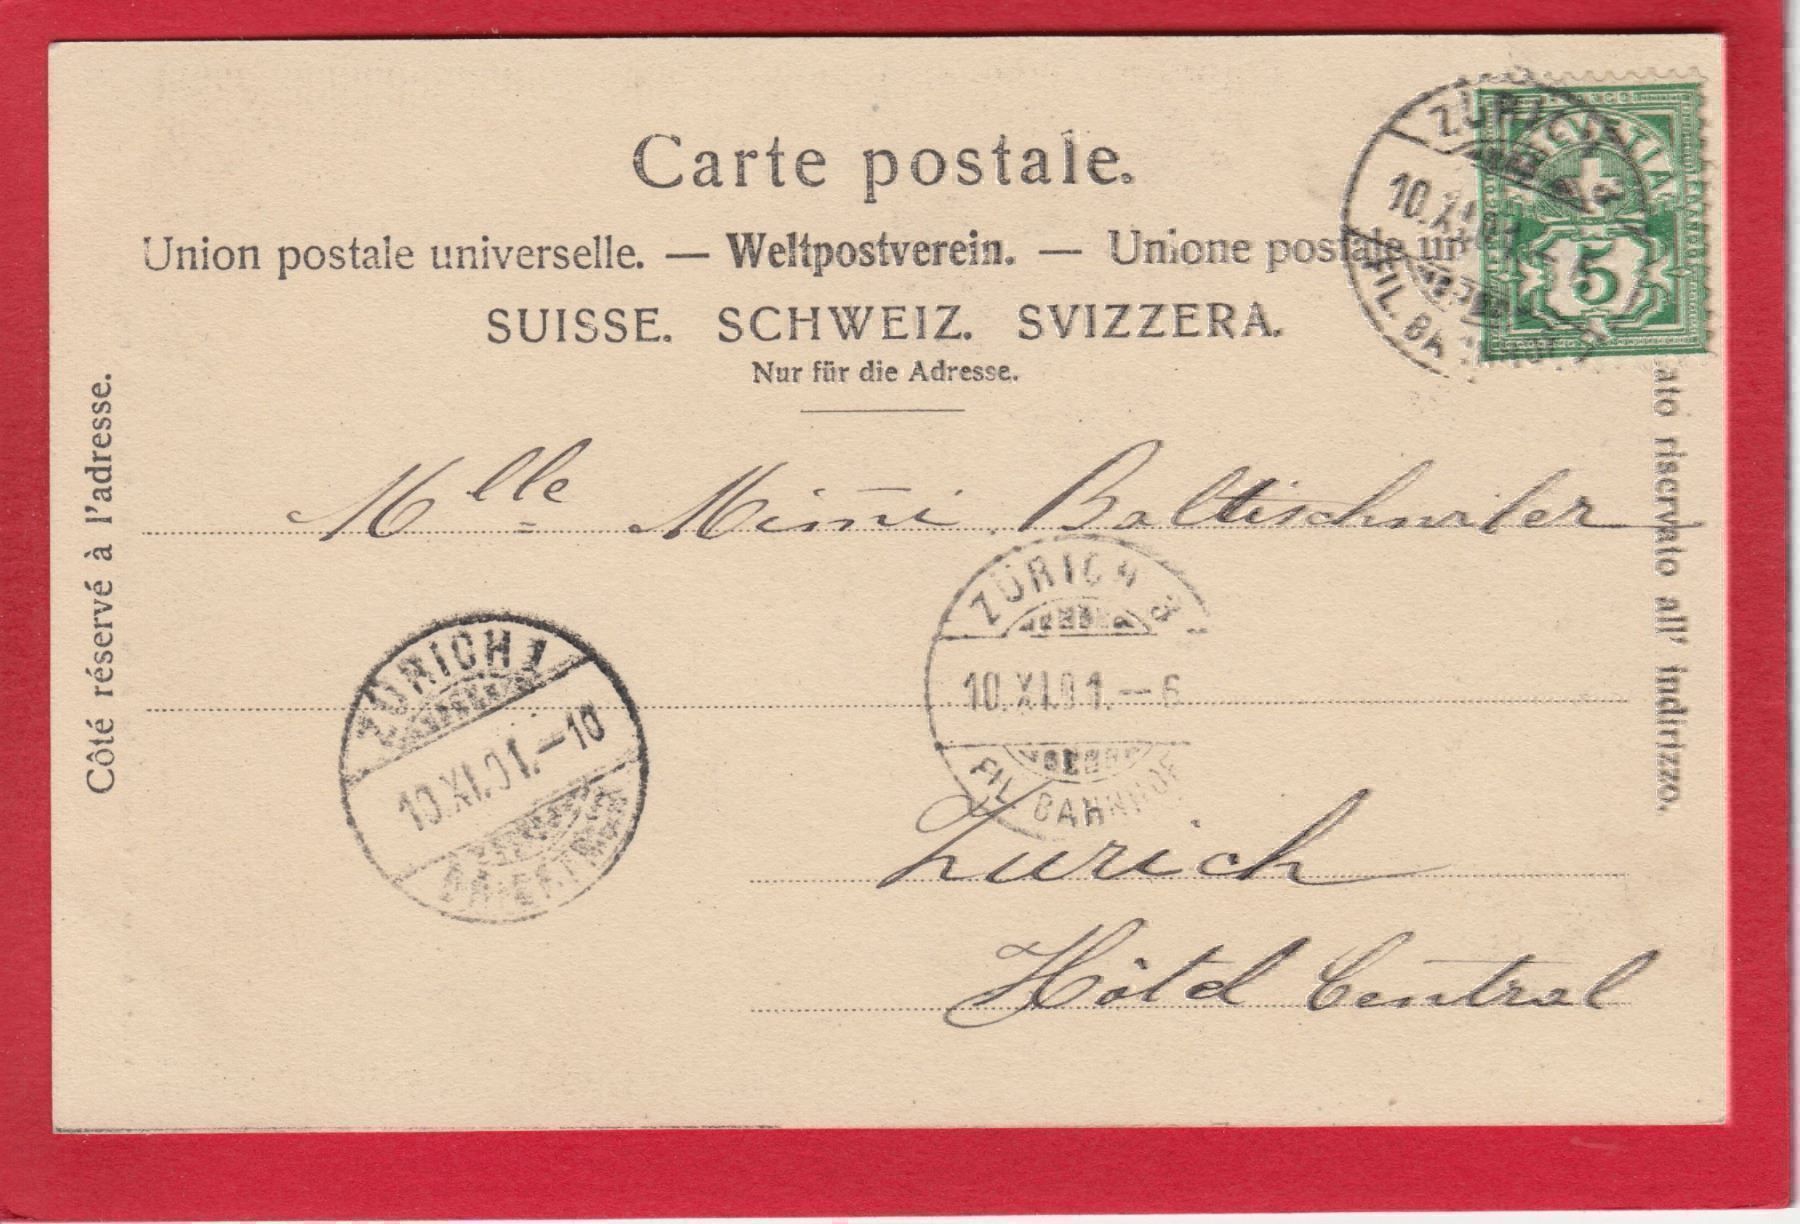 Carte postale.
Union postale universelle. — Weltpostverein. — Unione postale un
SUISSE. SCHWEIZ. SVIZZERA.
Nur für die Adresse.
HELVETIA
5
ZÜRICH
10.XI.01
FIL. BA
Côté réservé à l'adresse.
ato riservato all' indirizzo.
Mlle Mimi Baltischwiler
ZÜRICH 3
10.XI.01.–6
FIL. BAHNHOF
ZÜRICH 1
10.XI.01.–10
Zurich
Hôtel Central